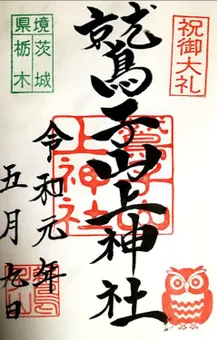 祝御大礼
鷲子山上神社
鷲子山
上神社
境茨城
県栃木
令和元年
五月九日